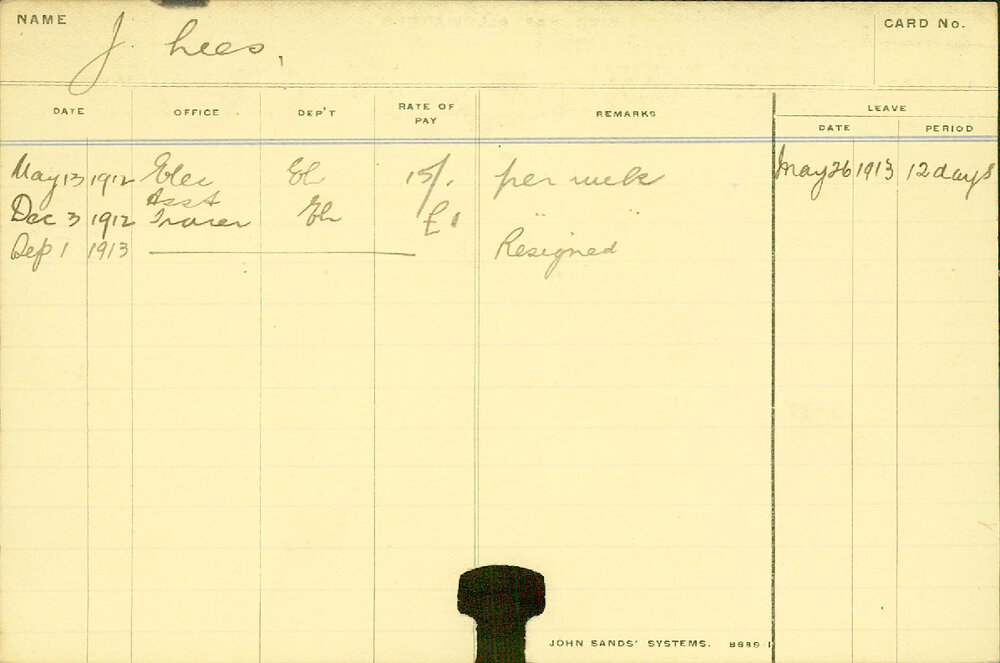 NAME J. Lees, CARD No.
DATE OFFICE DEP'T RATE OF PAY REMARKS LEAVE
DATE PERIOD
May 13 1912 Elec El 15/. per week May 26 1913 12 days
Dec 3 1912 Asst Tracer El £1 " "
Sep 1 1913 Resigned
JOHN SANDS' SYSTEMS.